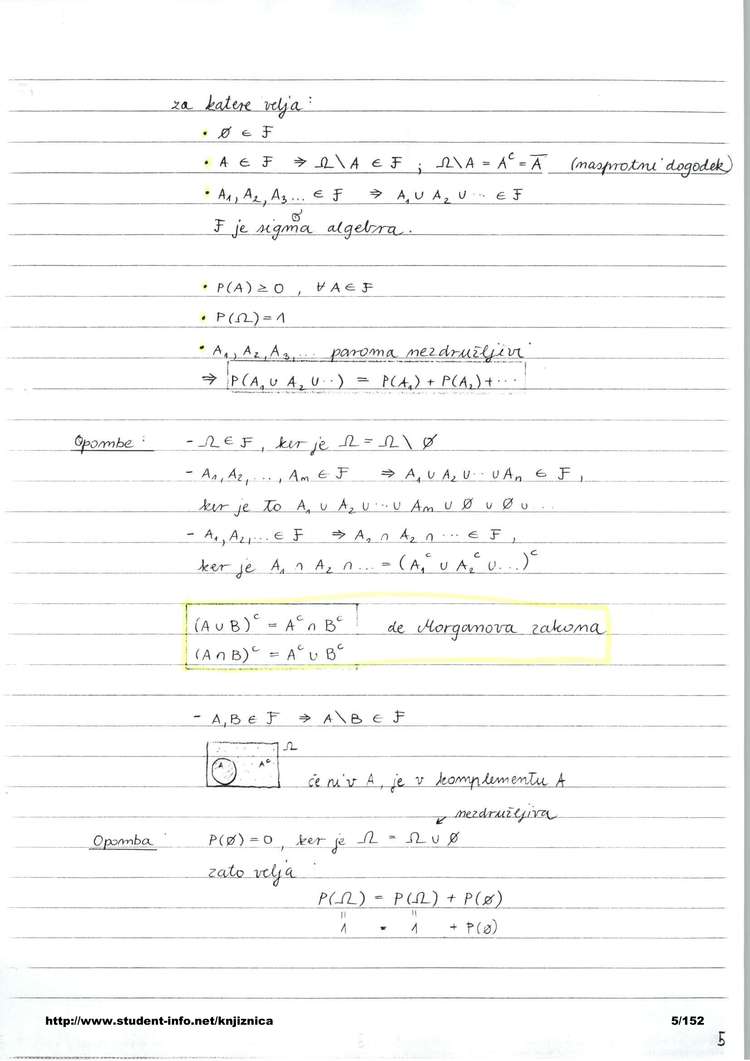 za katere velja:
• Ø ∈ F
• A ∈ F ⇒ Ω\A ∈ F ; Ω\A = Aᶜ = A̅ (nasprotni dogodek)
• A₁, A₂, A₃... ∈ F ⇒ A₁ ∪ A₂ ∪ ... ∈ F
σ
F je sigma algebra.
• P(A) ≥ 0 , ∀A ∈ F
• P(Ω) = 1
• A₁, A₂, A₃, ... paroma nezdružljivi
⇒ P(A₁ ∪ A₂ ∪ ...) = P(A₁) + P(A₂) + ...
Opombe: - Ω ∈ F, ker je Ω = Ω \ Ø
- A₁, A₂, ..., Aₙ ∈ F ⇒ A₁ ∪ A₂ ∪ ... ∪ Aₙ ∈ F,
ker je to A₁ ∪ A₂ ∪ ... ∪ Aₙ ∪ Ø ∪ Ø ∪ ...
- A₁, A₂, ... ∈ F ⇒ A₁ ∩ A₂ ∩ ... ∈ F,
ker je A₁ ∩ A₂ ∩ ... = (A₁ᶜ ∪ A₂ᶜ ∪ ...)ᶜ
(A ∪ B)ᶜ = Aᶜ ∩ Bᶜ de Morganova zakona
(A ∩ B)ᶜ = Aᶜ ∪ Bᶜ
- A, B ∈ F ⇒ A\B ∈ F
Ω
A Aᶜ
če ni v A, je v komplementu A
↙ nezdružljiva
Opomba P(Ø) = 0, ker je Ω = Ω ∪ Ø
zato velja:
P(Ω) = P(Ω) + P(Ø)
" "
1 = 1 + P(Ø)
http://www.student-info.net/knjiznica 5/152
5